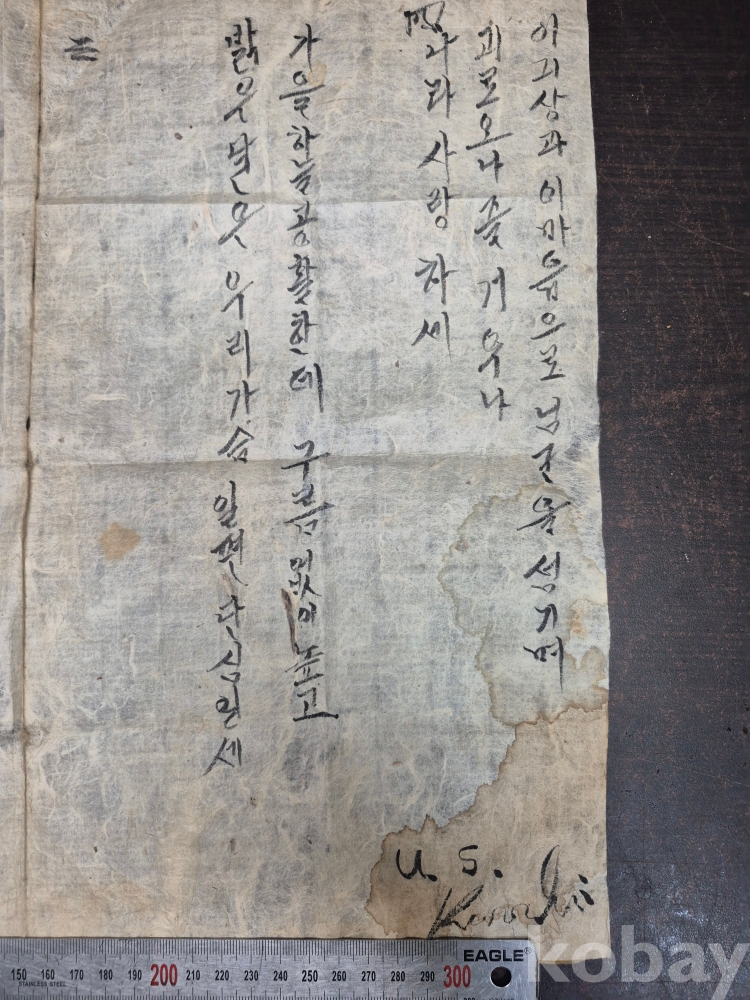 이긔상과 이마음으로 님군을 섬기며
괴로오나 즐거우나
나라사랑하세
가을하늘공활한데 구름없이 높고
밝은달은 우리가슴 일편단심일세
二
U. S.
EAGLE
STAINLESS STEEL
150 160 170 180 190 200 210 220 230 240 250 260 270 280 290 300
kobay